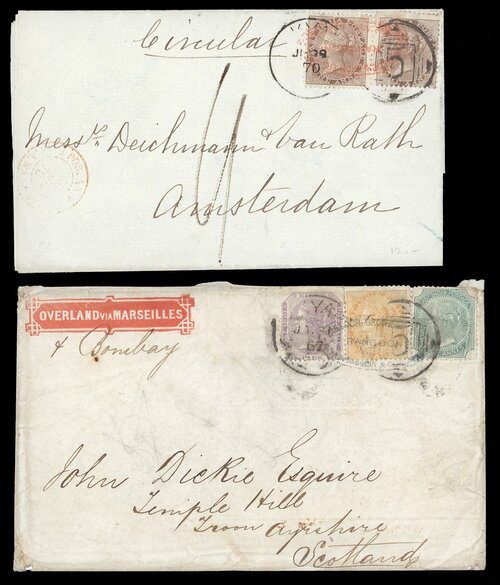 Circular
70
5
Mess.rs Deichmann & van Rath
Amsterdam
12.-
OVERLAND VIA MARSEILLES
& Bombay
67
RANGOON
John Dickie Esquire
Temple Hill
Troon Ayrshire
Scotland